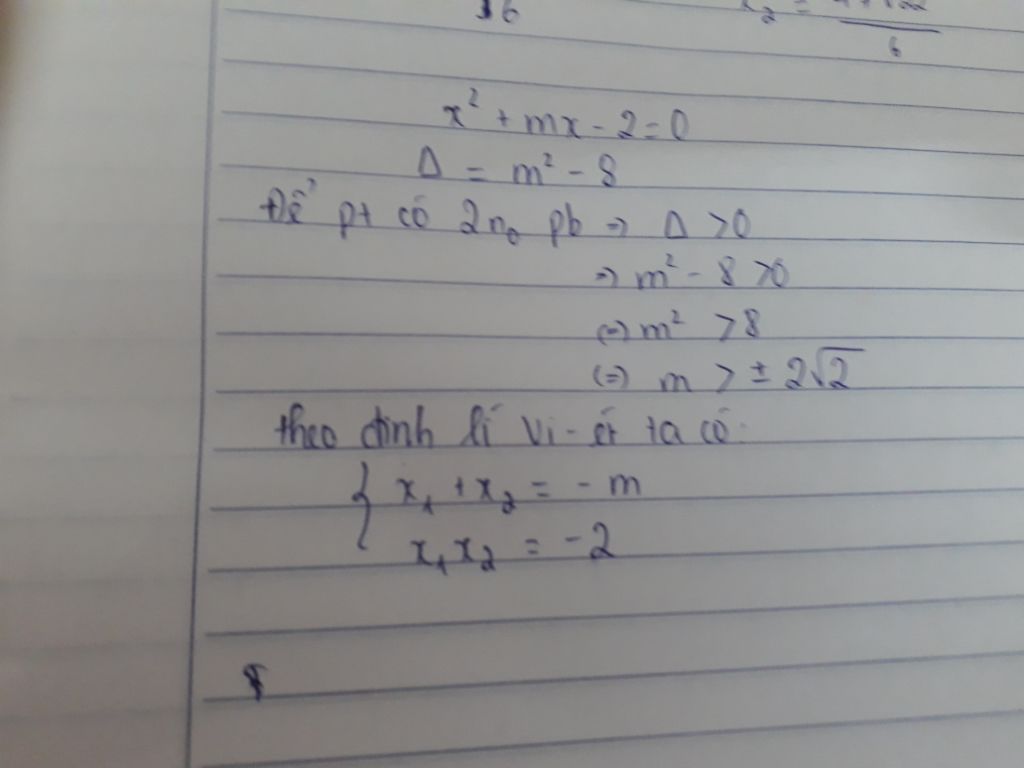 x² + mx - 2 = 0
Δ = m² - 8
Để pt có 2n₀ pb => Δ > 0
=> m² - 8 > 0
(=) m² > 8
(=) m > ± 2√2
theo định lí Vi-ét ta có:
{ x₁ + x₂ = - m
x₁x₂ = -2